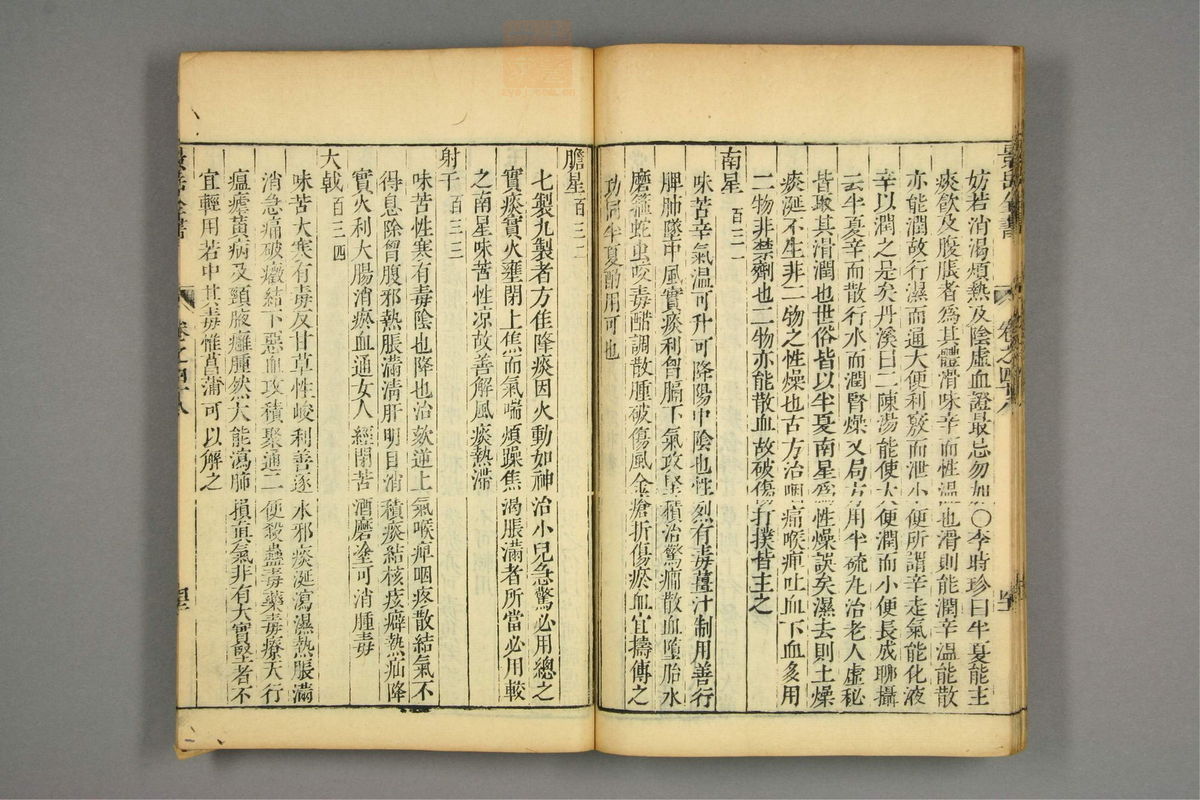 景岳全書
卷之四十八
妨若消渴煩熱及陰虛血證最忌勿加〇李時珍曰半夏能主
痰飲及腹脹者為其體滑味辛而性溫也滑則能潤辛溫能散
亦能潤故行濕而通大便利竅而泄小便所謂辛走氣能化液
辛以潤之是矣丹溪曰二陳湯能使大便潤而小便長成聊攝
云半夏辛而散行水而潤腎燥又局方用半硫丸治老人虛秘
皆取其滑潤也世俗皆以半夏南星為性燥誤矣濕去則土燥
痰涎不生非二物之性燥也古方治咽痛喉痺吐血下血多用
二物非禁劑也二物亦能散血故破傷打撲皆主之
南星 百三一
味苦辛氣溫可升可降陽中陰也性烈有毒薑汁制用善行
脾肺墜中風實痰利胷膈下氣攻堅積治驚癇散血墮胎水
磨箍蛇虫咬毒醋調散腫破傷風金瘡折傷瘀血宜擣傅之
功同半夏酌用可也
膽星 百三二
七製九製者方佳降痰因火動如神治小兒急驚必用總之
實痰實火壅閉上焦而氣喘煩躁焦渴脹滿者所當必用較
之南星味苦性涼故善解風痰熱滯
射干 百三三
味苦性寒有毒陰也降也治欬逆上氣喉痺咽疼散結氣不
得息除胷腹邪熱脹滿清肝明目消積痰結核痃癖熱疝降
實火利大腸消瘀血通女人經閉苦酒磨塗可消腫毒
大戟 百三四
味苦大寒有毒反甘草性峻利善逐水邪痰涎瀉濕熱脹滿
消急痛破癥結下惡血攻積聚通二便殺蠱毒藥毒療天行
瘟瘧黃病及頸腋癰腫然大能瀉肺損真氣非有大實堅者不
宜輕用若中其毒惟菖蒲可以解之
景岳全書
卷之四十八